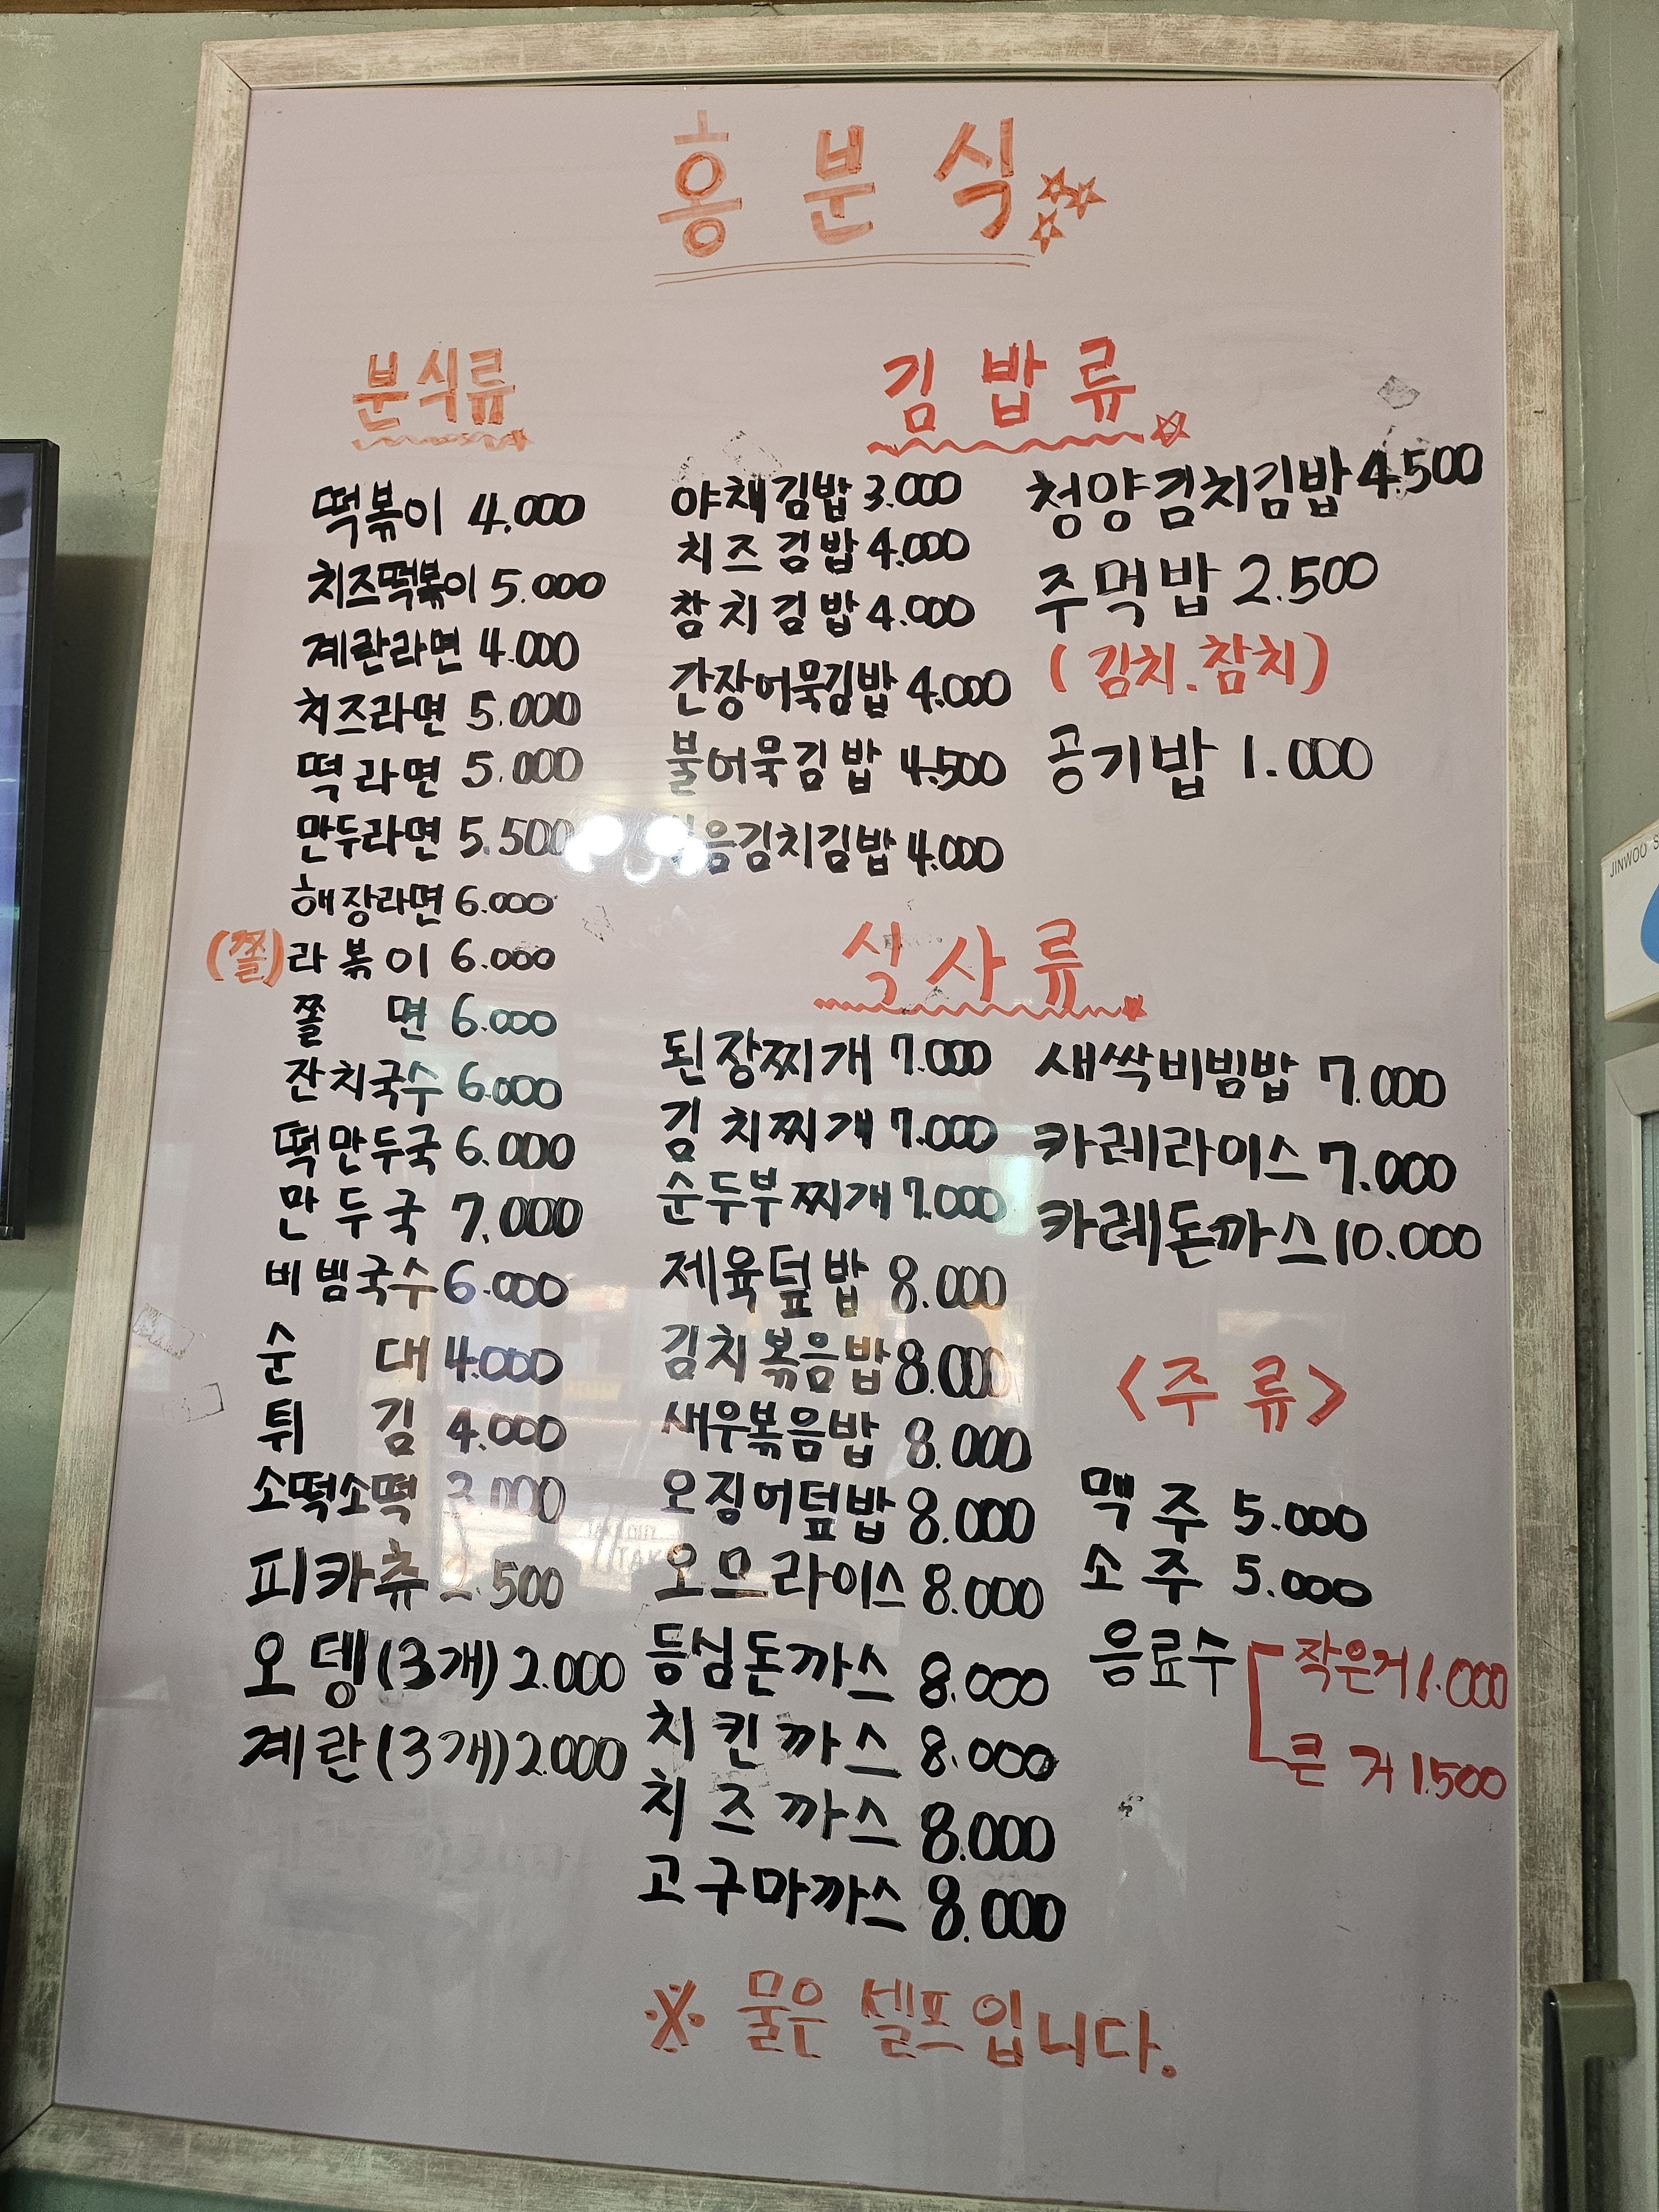 흥분식
분식류
떡볶이 4.000
치즈떡볶이 5.000
계란라면 4.000
치즈라면 5.000
떡라면 5.000
만두라면 5.500
해장라면 6.000
(쫄)라볶이 6.000
쫄면 6.000
잔치국수 6.000
떡만두국 6.000
만두국 7,000
비빔국수 6.000
순대 4.000
튀김 4.000
소떡소떡 3.000
피카츄 .500
오뎅(3개) 2.000
계란(3개) 2.000
김밥류
야채김밥 3.000
치즈김밥 4.000
참치김밥 4.000
간장어묵김밥 4.000
불어묵김밥 4.500
음김치김밥 4.000
청양김치김밥 4.500
주먹밥 2.500
(김치.참치)
공기밥 1.000
식사류
된장찌개 7.000
김치찌개 7.000
순두부찌개 7.000
제육덮밥 8.000
김치볶음밥 8.000
새우볶음밥 8.000
오징어덮밥 8.000
오므라이스 8.000
등심돈까스 8.000
치킨까스 8.000
치즈까스 8.000
고구마까스 8.000
새싹비빔밥 7.000
카레라이스 7.000
카레돈까스 10.000
<주류>
맥주 5.000
소주 5.000
음료수
작은거 1.000
큰거 1.500
※ 물은 셀프입니다.
JINWOO S